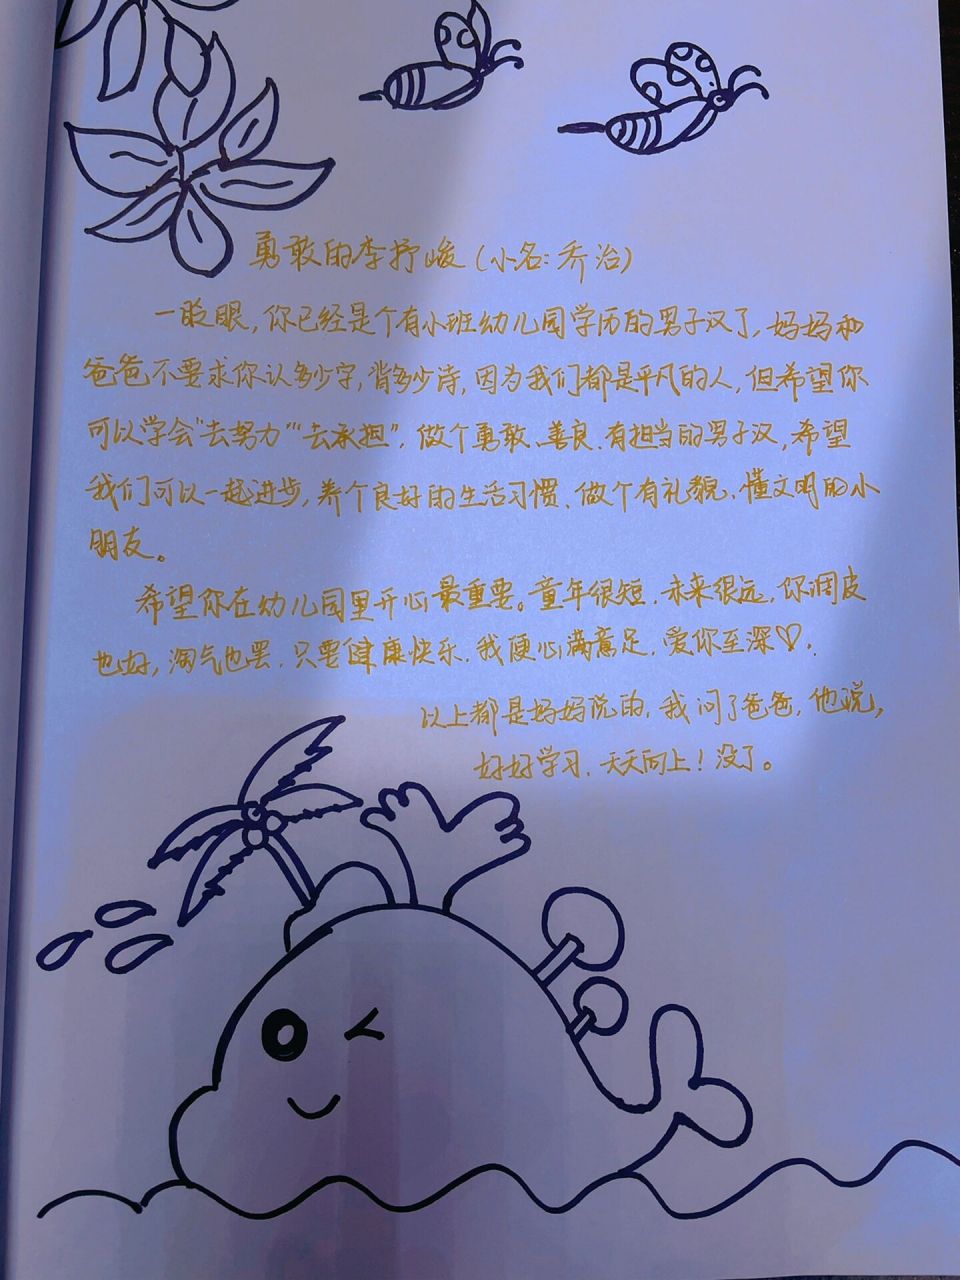 勇敢的李抒峻（小名：乔治）
一眨眼，你已经是个有小班幼儿园学历的男子汉了，妈妈和
爸爸不要求你认多少字，背多少诗，因为我们都是平凡的人，但希望你
可以学会“去努力”“去承担”，做个勇敢、善良、有担当的男子汉，希望
我们可以一起进步，养个良好的生活习惯、做个有礼貌、懂文明的小
朋友。
希望你在幼儿园里开心最重要。童年很短，未来很远，你调皮
也好，淘气也罢，只要健康快乐，我便心满意足，爱你至深♡，
以上都是妈妈说的，我问了爸爸，他说，
好好学习，天天向上！没了。